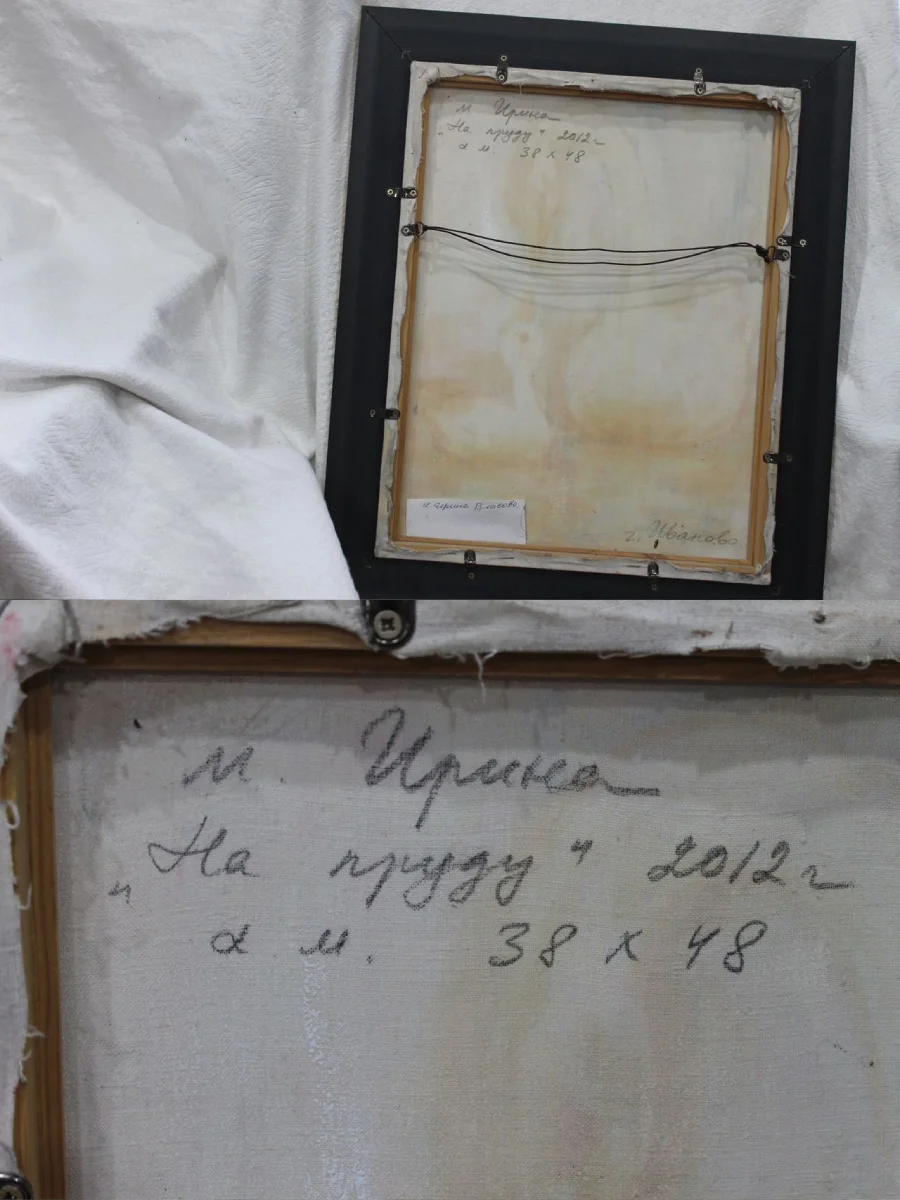 м Ирина
„На пруду" 2012г
х м. 38 х 48
г. Иваново
м Ирина
„На пруду" 2012г
х м. 38 х 48